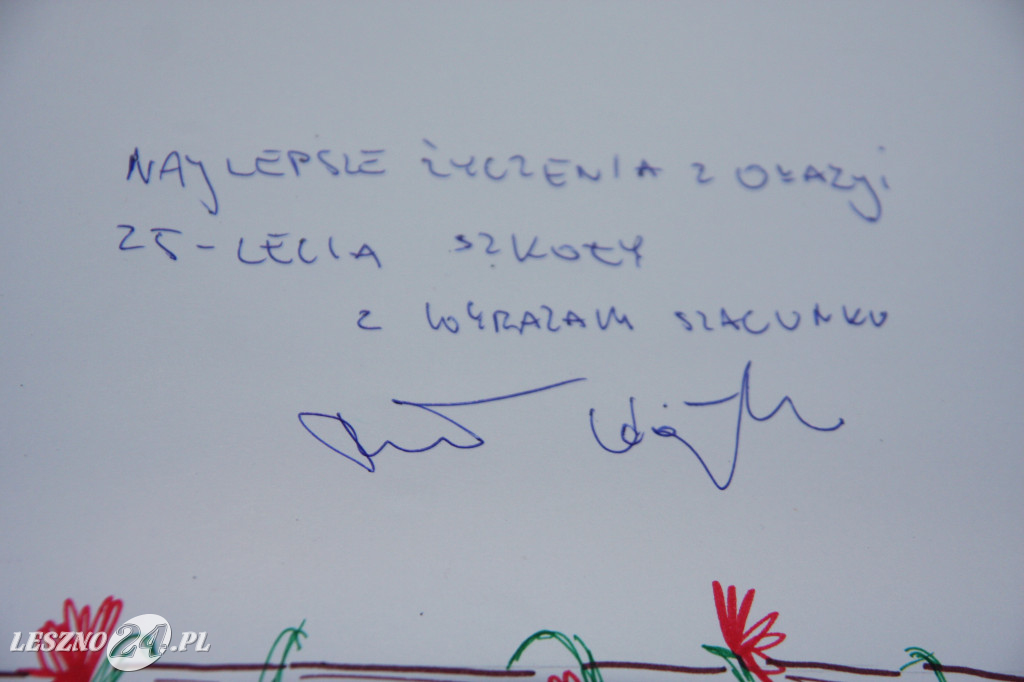 NAJLEPSZE ŻYCZENIA Z OKAZJI
25-LECIA SZKOŁY
Z WYRAZAMI SZACUNKU
LESZNO24.PL